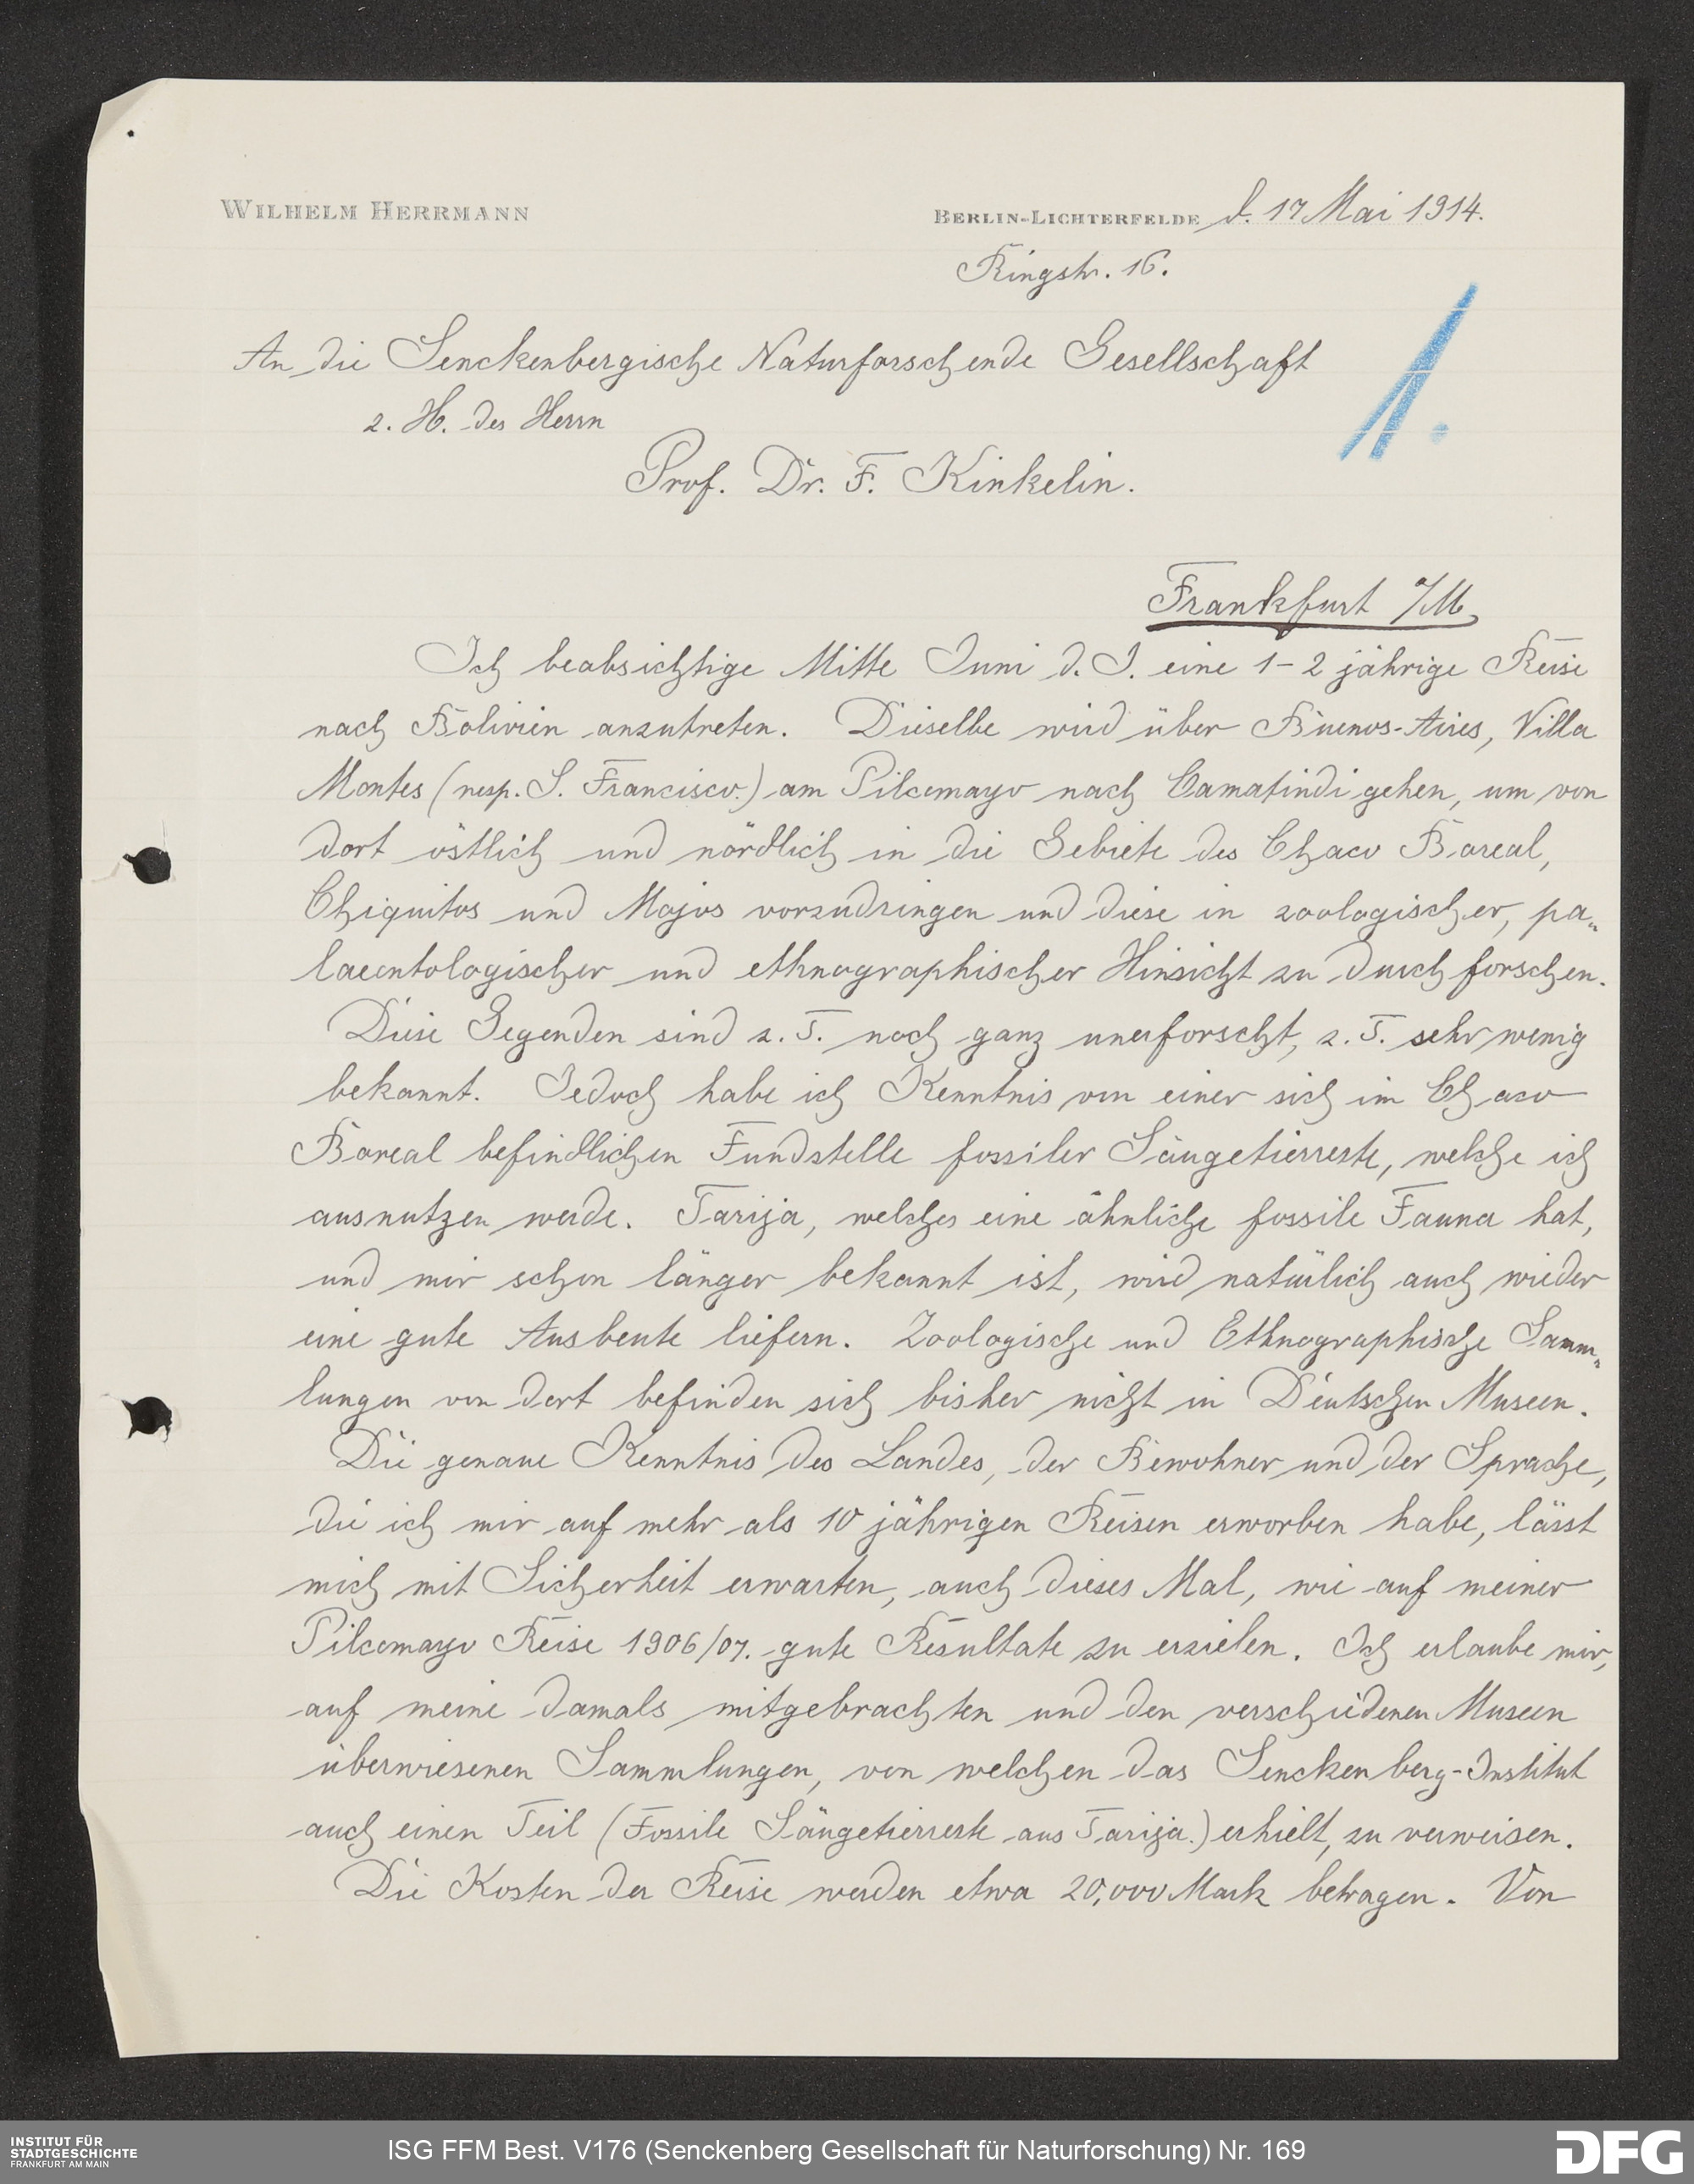 WILHELM HERRMANN
BERLIN-LICHTERFELDE d. 17 Mai 1914.
Ringstr. 16.
1.
An die Senckenbergische Naturforschende Gesellschaft
z. H. des Herrn
Prof. Dr. F. Kinkelin.
Frankfurt a/M.
Ich beabsichtige Mitte Juni d. J. eine 1-2 jährige Reise
nach Bolivien anzutreten. Dieselbe wird über Buenos-Aires, Villa
Montes (resp. S. Francisco.) am Pilcomayo nach Camatindi gehen, um von
dort östlich und nördlich in die Gebiete des Chaco Boreal,
Chiquitos und Mojos vorzudringen und diese in zoologischer, pa„
laeontologischer und ethnographischer Hinsicht zu durchforschen.
Diese Gegenden sind z. T. noch ganz unerforscht, z. T. sehr wenig
bekannt. Jedoch habe ich Kenntnis von einer sich im Chaco
Boreal befindlichen Fundstelle fossiler Säugetierreste, welche ich
ausnutzen werde. Tarija, welches eine ähnliche fossile Fauna hat,
und mir schon länger bekannt ist, wird natürlich auch wieder
eine gute Ausbeute liefern. Zoologische und Ethnographische Samm„
lungen von dort befinden sich bisher nicht in Deutschen Museen.
Die genaue Kenntnis des Landes, der Bewohner und der Sprache,
die ich mir auf mehr als 10 jährigen Reisen erworben habe, lässt
mich mit Sicherheit erwarten, auch dieses Mal, wie auf meiner
Pilcomayo Reise 1906/07. gute Resultate zu erzielen. Ich erlaube mir,
auf meine damals mitgebrachten und den verschiedenen Museen
überwiesenen Sammlungen, von welchen das Senckenberg-Institut
auch einen Teil (Fossile Säugetierreste aus Tarija.) erhielt, zu verweisen.
Die Kosten der Reise werden etwa 20,000 Mark betragen. Von
INSTITUT FÜR
STADTGESCHICHTE
FRANKFURT AM MAIN
ISG FFM Best. V176 (Senckenberg Gesellschaft für Naturforschung) Nr. 169
DFG